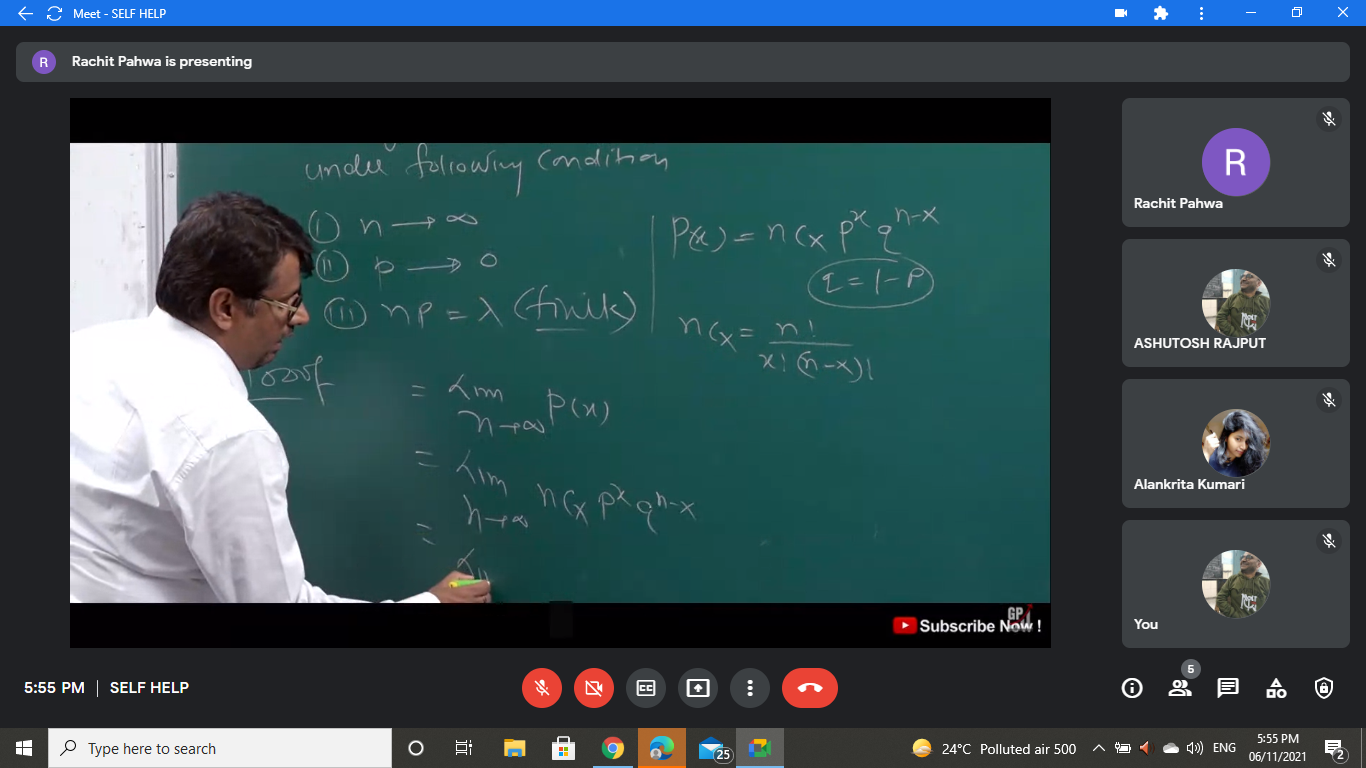 Meet - SELF HELP
R Rachit Pahwa is presenting
under following condition
(i) n → ∞
(ii) p → 0
(iii) np = λ (finite)
P(x) = nCx p^x q^n-x
q = 1-p
nCx = n! / x! (n-x)!
= Lim n→∞ P(x)
= Lim n→∞ nCx p^x q^n-x
=
GP
Subscribe Now !
R
Rachit Pahwa
ASHUTOSH RAJPUT
Alankrita Kumari
You
5:55 PM | SELF HELP
5
Type here to search
25
24°C Polluted air 500
ENG
5:55 PM
06/11/2021
2